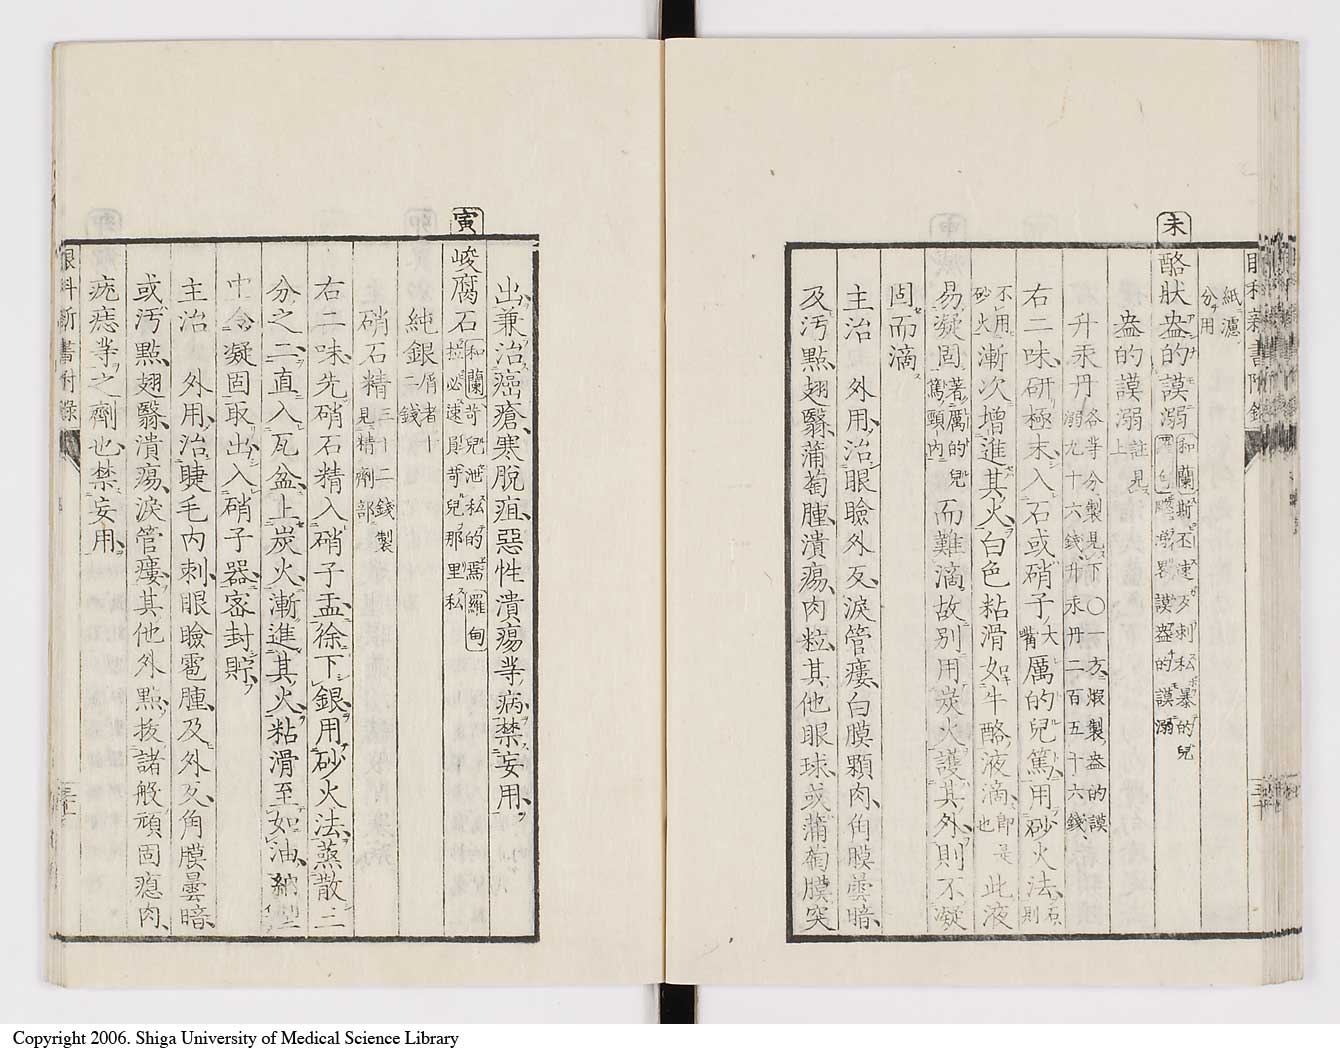 眼科新書附錄
紙濾
分用
未
酪狀盎的謨溺
和蘭 斯丕速歹刺私暴的兒
謨盎的謨溺
盎的謨溺 註見上
升汞丹 各等分製見下〇一方煆製盎的謨
溺九十六錢升汞丹二百五十六錢
右二味研極末入石或硝子大嘴厲的兒篤用砂火法 石則
不用砂火 漸次增進其火白色粘滑如牛酪液滴 即是此液也
易凝固 著厲的兒篤頸內 而難滴故別用炭火護其外則不凝
固而滴
主治 外用治眼瞼外反淚管瘻白膜顆肉角膜曇暗
及汚點翅翳蒲萄腫潰瘍肉粒其他眼球或蒲萄膜突
出兼治癌瘡寒脫疽惡性潰瘍等病禁妄用
寅
峻腐石
和蘭 苛兒泄私的焉 羅甸
拉必速屋苛兒那里私
純銀 屑者十二錢
硝石精 三十二錢製見精劑部
右二味先硝石精入硝子盂徐下銀用砂火法蒸散三
分之二直入瓦盆上炭火漸進其火粘滑至如油納型
中令凝固取出入硝子器密封貯
主治 外用治睫毛內刺眼瞼雹腫及外反角膜曇暗
或汚點翅翳潰瘍淚管瘻其他外點拔諸般頑固瘜肉
疣痣等之劑也禁妄用
眼科新書附錄